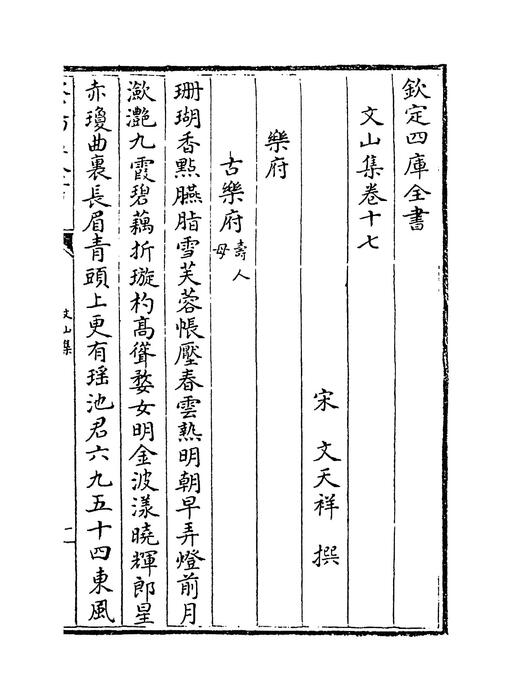 欽定四庫全書
文山集卷十七
宋 文天祥 撰
樂府
古樂府 壽人母
珊瑚香㸃臙脂雪芙蓉帳壓春雲熱明朝早弄燈前月
瀲灧九霞碧藕折璇杓髙聳婺女明金波漾曉輝郎星
赤瓊曲裏長眉青頭上更有瑶池君六九五十四東風
文山集